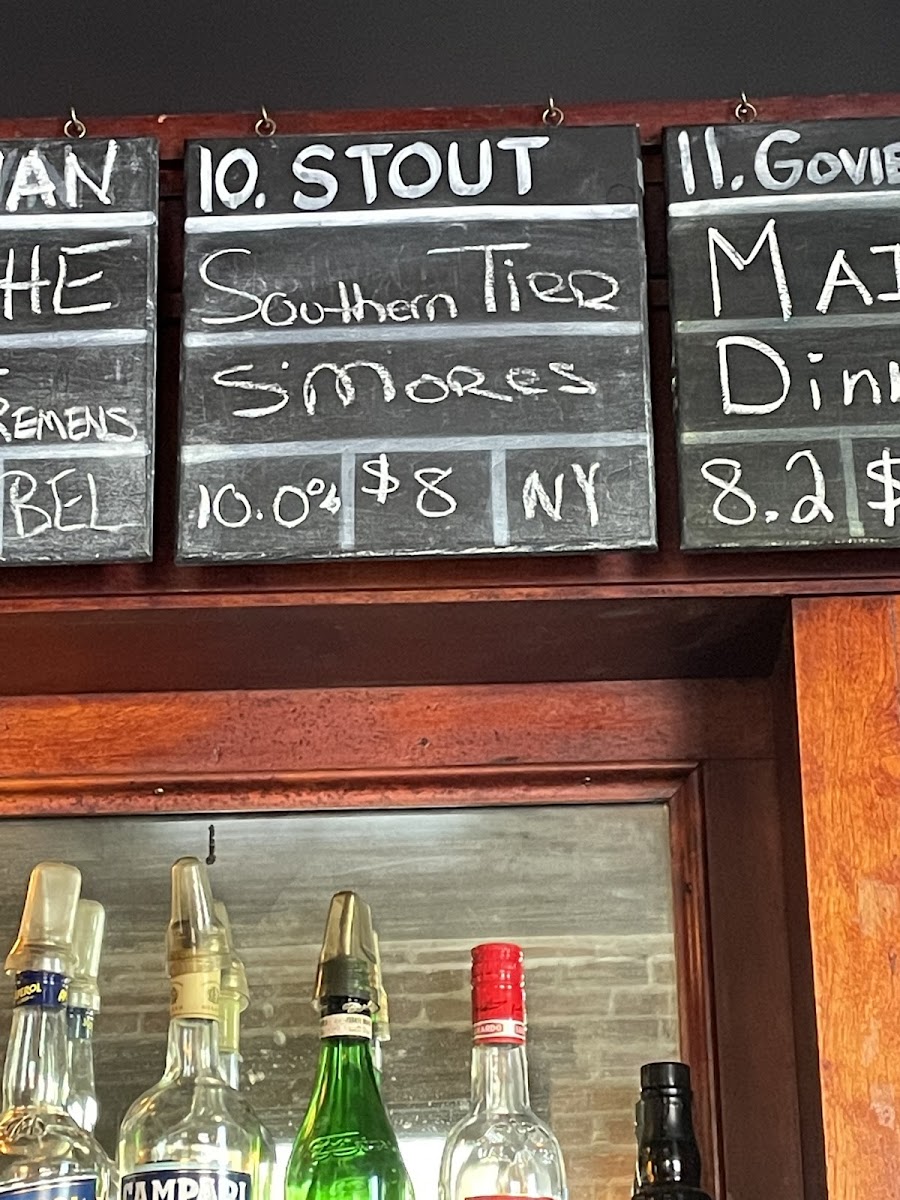 10. STOUT
Southern Tier
S'mores
10.0% $8 NY
VAN
HE
REMENS
BEL
11. GOVIE
MAI
Din
8.2 $
CAMPARI